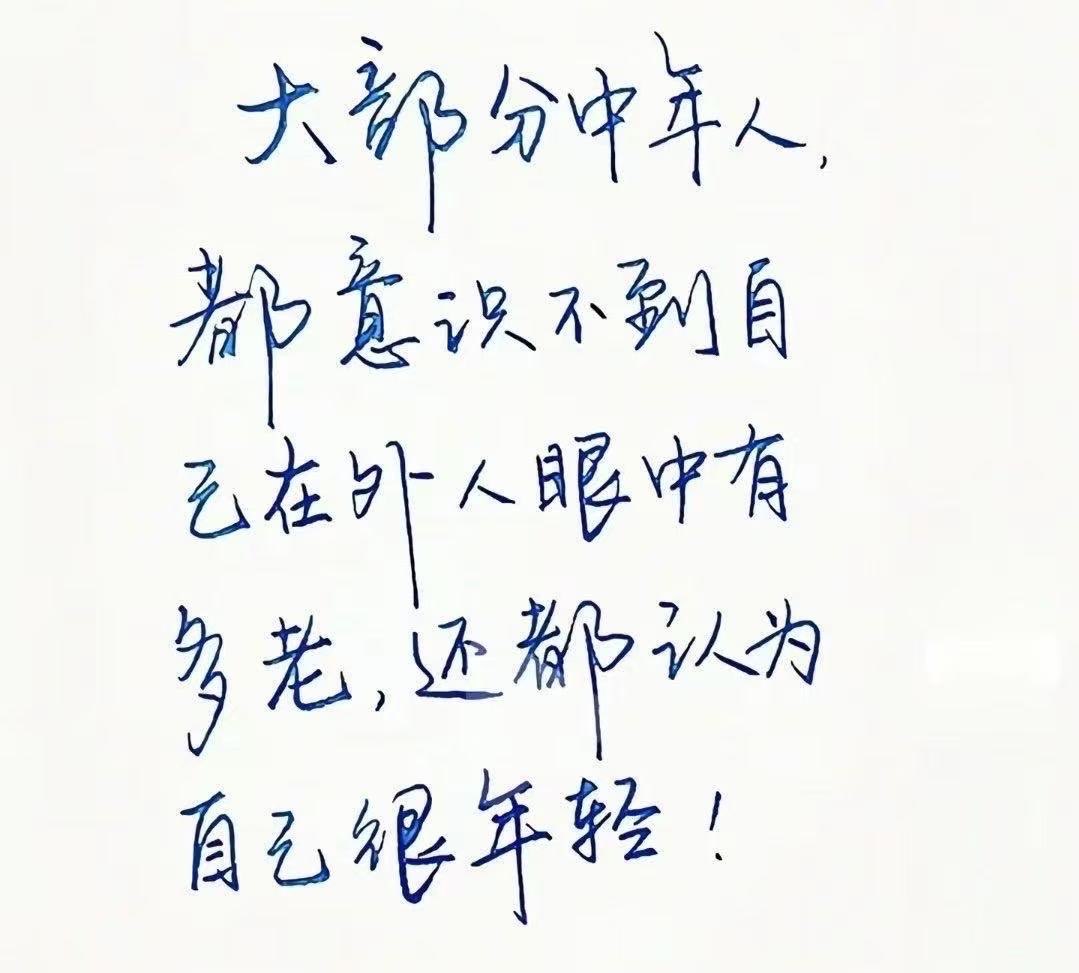 大部分中年人，
都意识不到自
己在外人眼中有
多老，还都认为
自己很年轻！